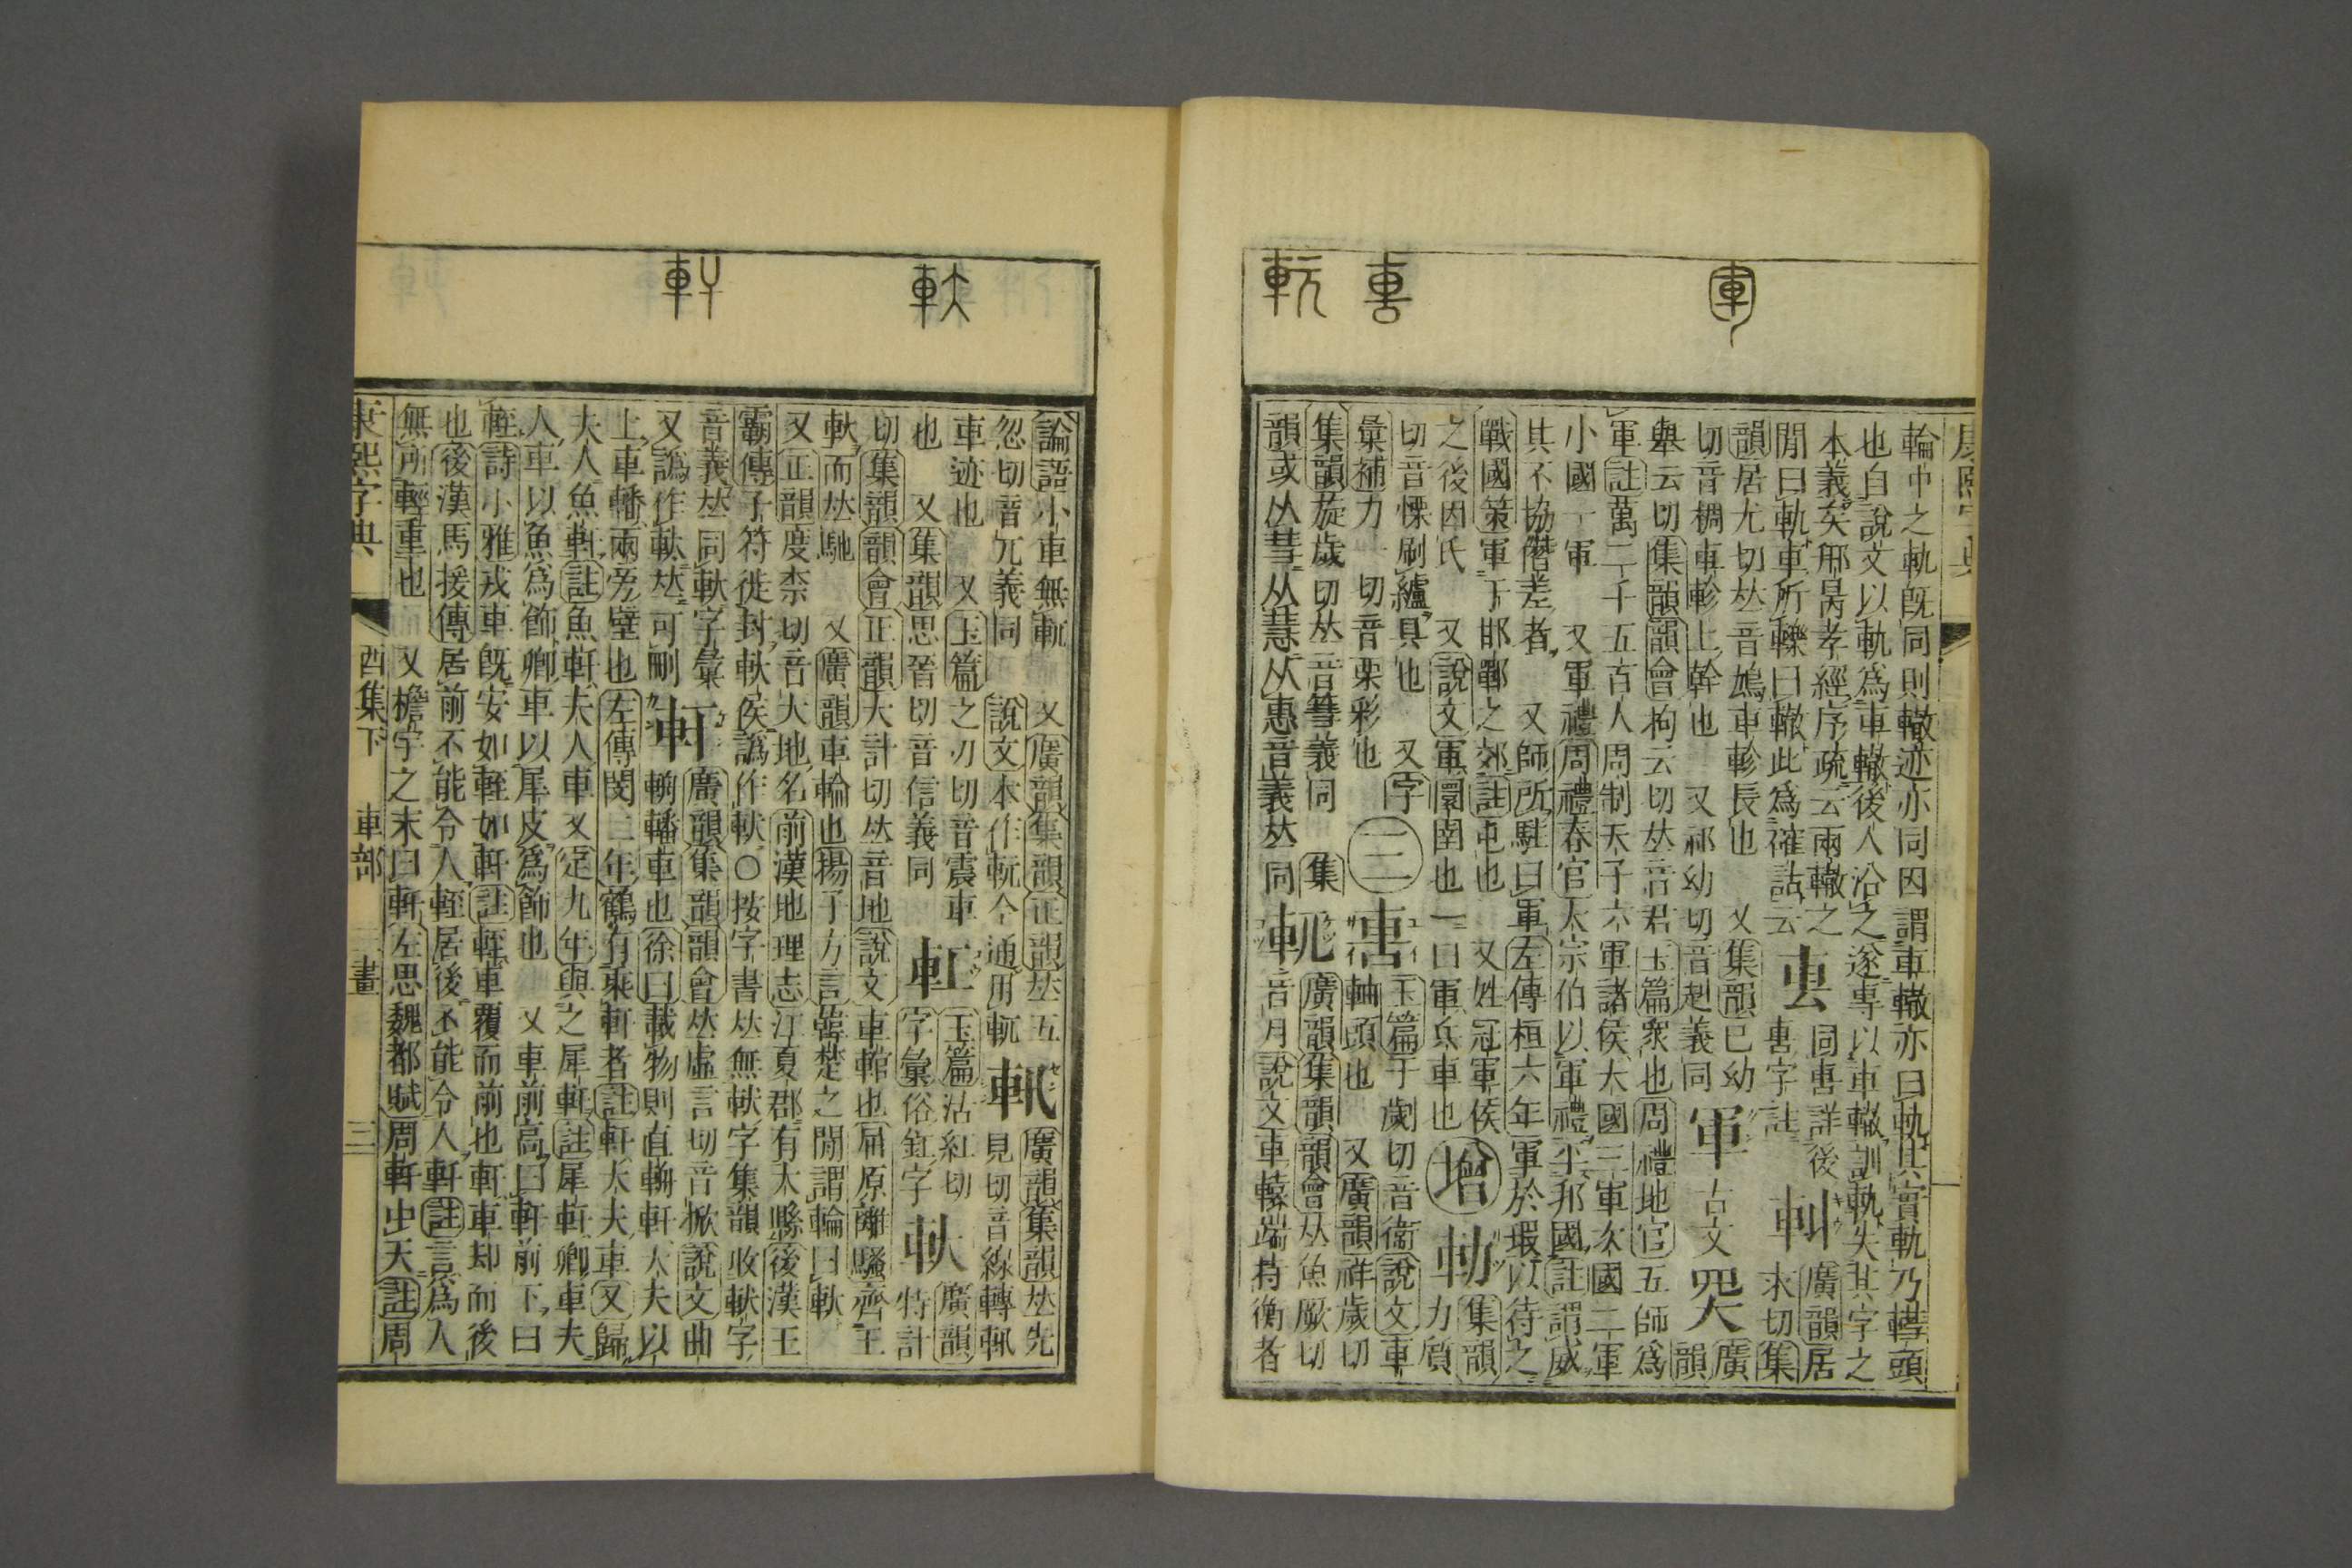 輪中之軌既同則轍迹亦同因謂車轍亦曰軌其實軌乃轊頭
也白說文以軌爲車轍後人沿之遂專以車轍訓軌失其字之
本義矣邢昺孝經序疏云兩轍之
閒曰軌車所轢曰轍此爲確詁云
䡂
同軎詳後
軎字註
䡄
廣韻居
求切集
韻居尤切𠀤音鳩車軫長也 又集韻巳幼
切音椆車軫上幹也 又祁幼切音赳義同
軍
古文
𠔞
廣
韻
舉云切集韻韻會拘云切𠀤音君玉篇衆也周禮地官五師爲
軍註萬二千五百人周制天子六軍諸侯大國三軍次國二軍
小國一軍 又軍禮周禮春官大宗伯以軍禮同邦國註謂威
其不協僭差者 又師所駐曰軍左傳桓六年軍於瑕以待之
戰國策軍于邯鄲之郊註屯也 又姓冠軍侯
之後因氏 又說文軍圜圍也一曰軍兵車也
增
集韻
力質
切音慄刷纑具也 又字
彙補力 切音栗彩也
三
軎
玉篇于歲切音衞說文車
軸頭也 又廣韻祥歲切
集韻旋歲切𠀤音篲義同 集
韻或从彗从慧从惠音義𠀤同
軏
廣韻集韻韻會𠀤魚厥切
音月說文車轅耑持衡者
論語小車無軏 又廣韻集韻正韻𠀤五
忽切音兀義同 說文本作𨊾今通用軏
廣韻集韻𠀤先
見切音線轉軓
車迹也 又玉篇之刃切音震車
也 又集韻思晉切音信義同
軖
玉篇沽紅切
字彙俗釭字
軑
廣韻
特計
切集韻韻會正韻大計切𠀤音地說文車輨也屈原離騷齊玉
軑而𠀤馳 又廣韻車輪也揚子方言韓楚之閒謂輪曰軑
又正韻度柰切音大地名前漢地理志江夏郡有大縣後漢王
霸傳子符徙封軑侯譌作軑○按字書𠀤無軑字集韻收軑字
音義𠀤同軑字彙
又譌作軚𠀤可刪
軒
廣韻集韻韻會𠀤虛言切音掀說文曲
輈轓車也徐曰載物則直輈軒大夫以
上車轓兩旁壁也左傳閔二年鶴有乘軒者註軒大夫車又歸
夫人魚軒註魚軒夫人車又定九年與之犀軒註犀軒卿車夫
人車以魚爲飾卿車以犀皮爲飾也 又車前高曰軒前下曰
輊詩小雅戎車既安如輊如軒註輊車覆而前也軒車却而後
也後漢馬援傳居前不能令人輊居後不能令人軒註言爲人
無所輕重也 又檐宇之末曰軒左思魏都賦周軒中天註周
康熙字典
酉集下 車部 三畫
三